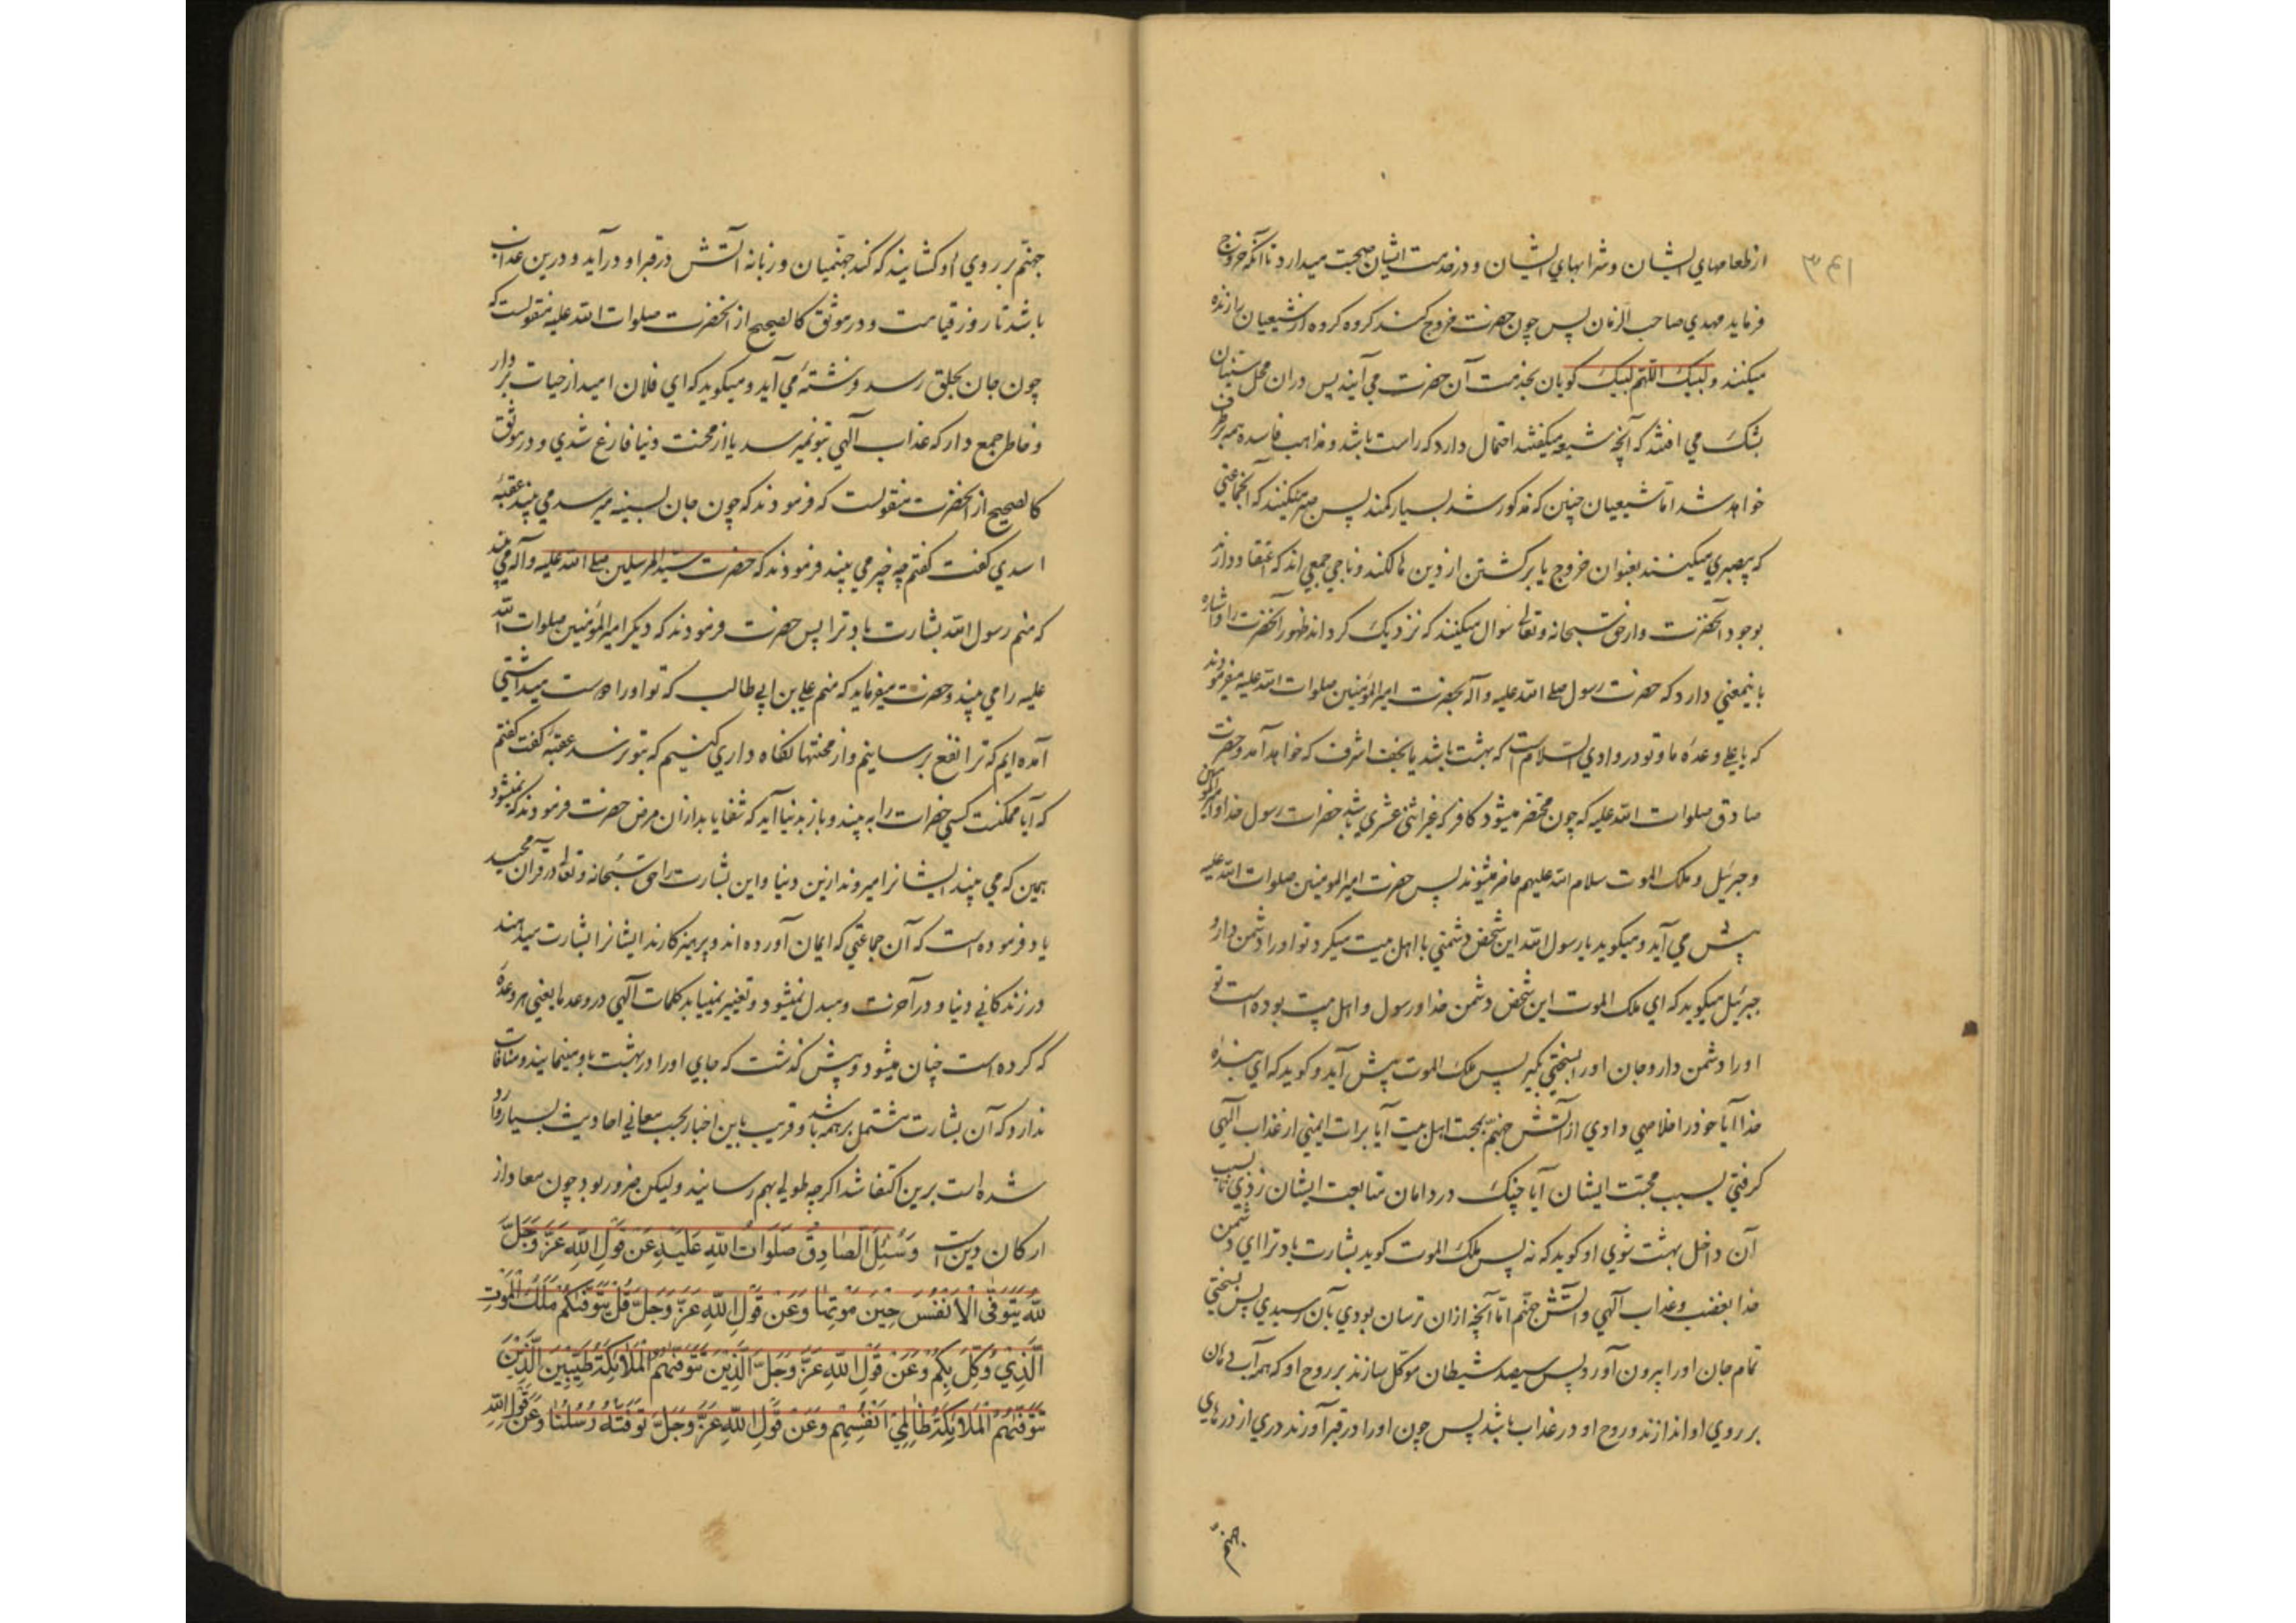 از طعامهای ایشان و شرابهای ایشان و در خدمت ایشان صحبت میدارد تا آنکه خروج
فرماید مهدي صاحب الزمان پس چون حضرت خروج کند کروه کروه از شیعیان را زنده
میکنند و لبیک اللهم لبیک کویان بخدمت آن حضرت می آیند پس دران محل سنیان
بشک می افتند که آنچه شیعه میکفتند احتمال دارد که راست باشد و مذاهب فاسده همه برطرف
خواهد شد اما شیعیان چنین که مذکور شد بسیار کمند پس صبر میکنند که آنجماعتی
که بیصبري میکنند بعنوان خروج یا برکشتن از دین هالکند و ناجی جمعی اند که اعتقاد دارند
بوجود آنحضرت و از حق سبحانه و تعالی سوال میکنند که نزدیک کرداند ظهور آنحضرت را و اشاره
باینمعنی دارد که حضرت رسول صلی الله علیه و آله بحضرت امیر المؤمنین صلوات الله علیه میفرمودند
که یا علی وعده ما و تو در وادي السلام است که بهشت باشد یا نجف اشرف که خواهد آمد و حضرت
صادق صلوات الله علیه که چون محتضر میشود کافر که غیر اثنی عشري باشد حضرات رسول خدا و امیر المؤمنین
و جبرئیل و ملک الموت سلام الله علیهم حاضر میشوند پس حضرت امیر المومنین صلوات الله علیه
پیش می آید و میکوید یا رسول الله این شخص دشمنی با اهل بیت میکرد تو او را دشمن دار و
جبرئیل میکوید که اي ملک الموت این شخص دشمن خدا و رسول و اهل بیت بوده است تو
او را دشمن دار و جان او را بسختی بکیر پس ملک الموت پیش آید و کوید که اي بنده
خدا آیا خود را خلاصی دادي از آتش جهنم بمحبت اهل بیت آیا برات ایمنی از عذاب الهی
کرفتی بسبب محبت ایشان آیا چنک در دامان متابعت ایشان زدي تا بسبب
آن داخل بهشت شوي او کوید که نه پس ملک الموت کوید بشارت باد ترا اي دشمن
خدا بغضب و عذاب الهی و آتش جهنم اما آنچه ازان ترسان بودي بآن رسیدي پس بسختی
تمام جان او را بیرون آورد پس سیصد شیطان موکل سازند بر روح او که همه آب دهان
بر روي او اندازند و روح او در عذاب باشد پس چون او را در قبر آورند دري از درهاي
جهنم
جهنم بر روي او کشایند که کند جهنمیان و زبانه آتش در قبر او درآید و درین عذاب
باشد تا روز قیامت و در موثق کالصحیح از آنحضرت صلوات الله علیه منقولست که
چون جان بحلق رسد فرشتهٔ می آید و میکوید که اي فلان امید از حیات بردار
و خاطر جمع دار که عذاب الهی بتو نمیرسد یا از محنت دنیا فارغ شدي و در موثق
کالصحیح از آنحضرت منقولست که فرمودند که چون جان بسینه میرسد می بیند عقبهٔ
اسدي کفت کفتم چه چیز می بیند فرمودند که حضرت سید المرسلین صلی الله علیه و آله می بیند
که منم رسول الله بشارت باد ترا پس حضرت فرمودند که دیکر امیر المؤمنین صلوات الله
علیه را می بیند و حضرت میفرماید که منم علی بن ابی طالب که تو او را دوست میداشتی
آمده ایم که ترا نفع برسانیم و از محنتها نکاه داري کنیم که بتو نرسد عقبه کفت کفتم
که آیا ممکنست کسی حضرات را به بیند و باز بدنیا آید که شفا یابد ازان مرض حضرت فرمودند که نمیشود
همین که می بیند ایشانرا میروند ازین دنیا و این بشارت را حق سبحانه و تعالی در قرآن مجید
یاد فرموده است که آن جماعتی که ایمان آورده اند و پرهیزکارند ایشانرا بشارت میدهند
در زندکانی دنیا و در آخرت و مبدل نمیشود و تغییر نمییابد کلمات الهی در وعدها یعنی هر وعده
که کرده است چنان میشود و پیش کذشت که جاي او را در بهشت باو مینمایند و منافات
ندارد که آن بشارت مشتمل بر همه باشد و قریب باین اخبار بحسب معانی احادیث بسیار وارد
شده است برین اکتفا شد اکرچه طولی بهم رسانید و لیکن ضرور بود چون معاد از
ارکان دین است وَسُئِلَ الصَّادِقُ صَلَوَاتُ اللّٰهِ عَلَيْهِ عَنْ قَوْلِ اللّٰهِ عَزَّ وَجَلَّ
للّٰه يَتَوَفَّى الْاَنْفُسَ حِيْنَ مَوْتِهَا وَعَنْ قَوْلِ اللّٰهِ عَزَّ وَجَلَّ قُلْ يَتَوَفّٰيكُمْ مَلَكُ الْمَوْتِ
الَّذِيْ وُكِّلَ بِكُمْ وَعَنْ قَوْلِ اللّٰهِ عَزَّ وَجَلَّ الَّذِيْنَ تَتَوَفّٰيهُمُ الْمَلَائِكَةُ طَيِّبِيْنَ الَّذِيْنَ
تَتَوَفّٰيهُمُ الْمَلَائِكَةُ ظَالِمِيْ اَنْفُسِهِمْ وَعَنْ قَوْلِ اللّٰهِ عَزَّ وَجَلَّ تَوَفَّتْهُ رُسُلُنَا وَعَنْ قَوْلِ اللّٰهِ